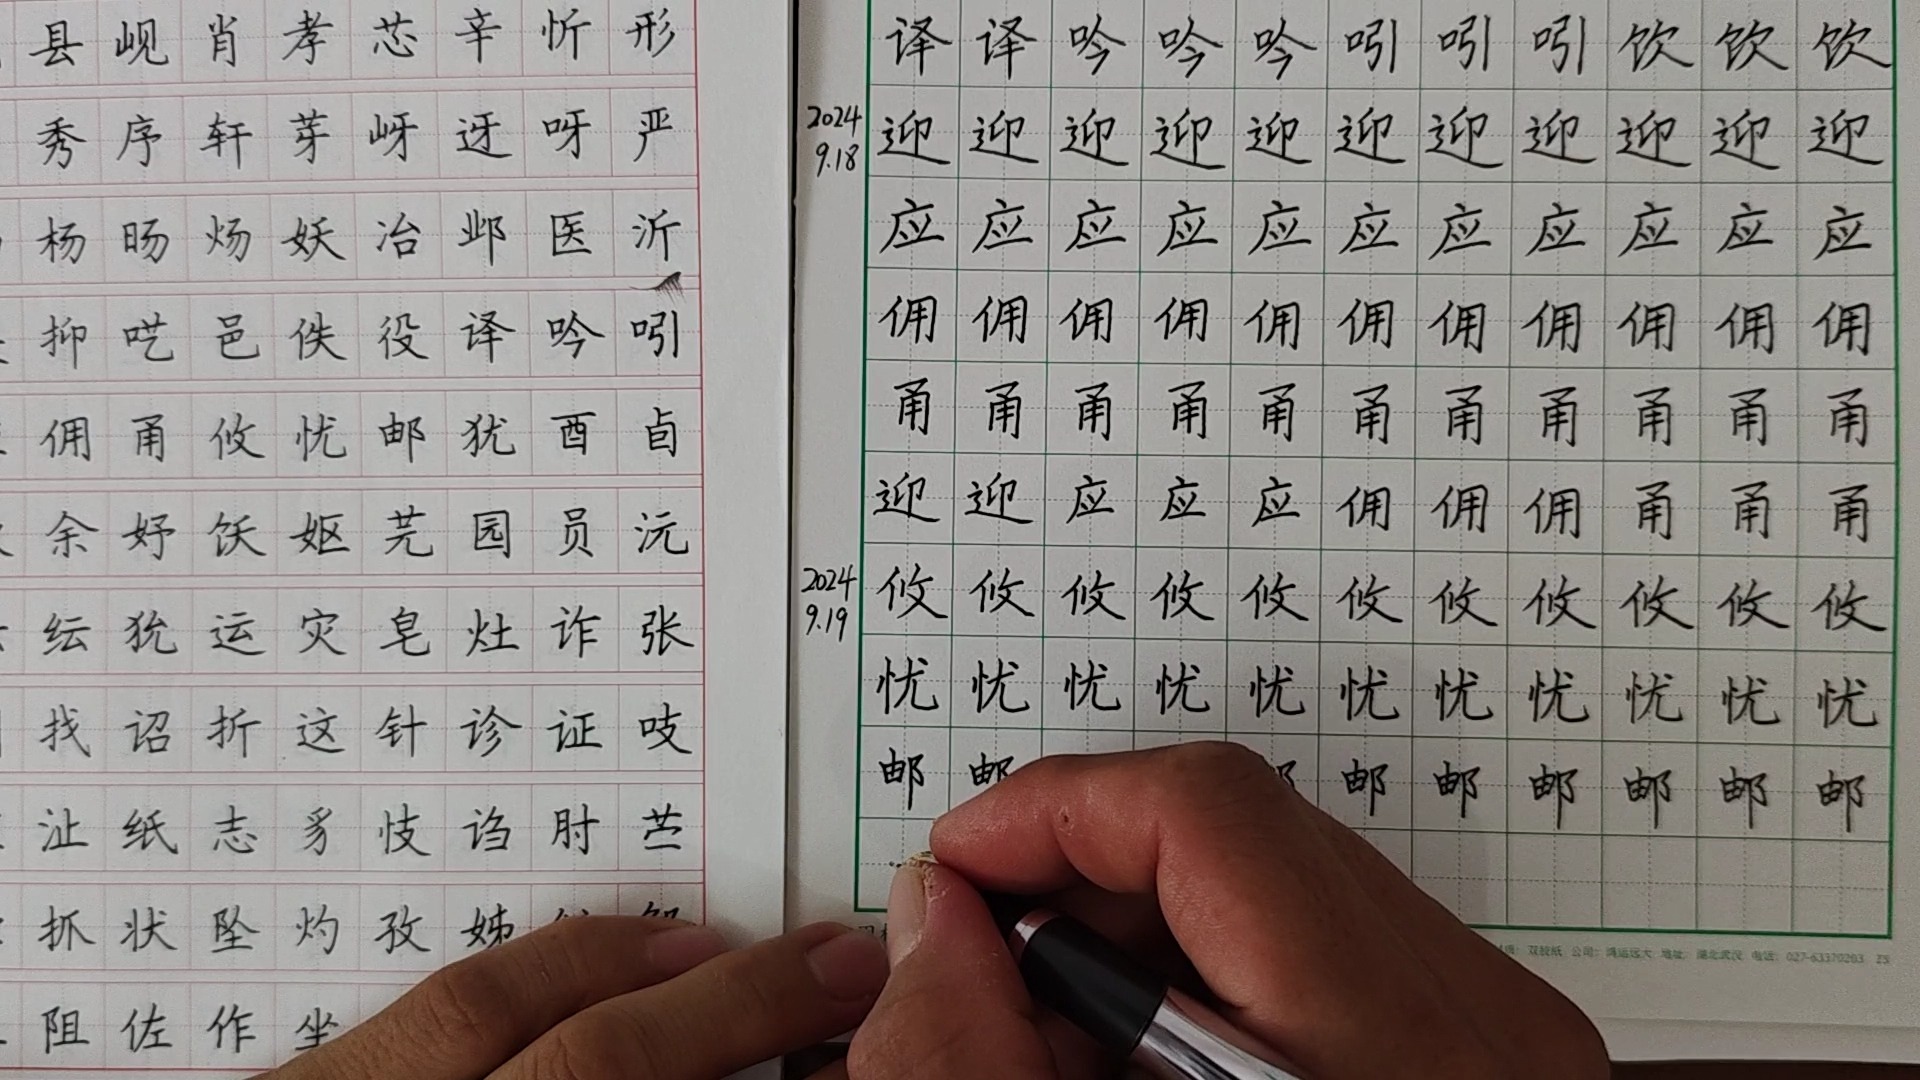 县 岘 肖 孝 芯 辛 忻 形
秀 序 轩 芽 岈 迓 呀 严
杨 旸 炀 妖 冶 邺 医 沂
抑 呓 邑 佚 役 译 吟 吲
佣 甬 攸 忧 邮 犹 酉 卣
余 妤 饫 妪 芫 园 员 沅
纭 犹 运 灾 皂 灶 诈 张
找 诏 折 这 针 诊 证 吱
沚 纸 志 豸 忮 诌 肘 苎
抓 状 坠 灼 孜 姊
阻 佐 作 坐
译 译 吟 吟 吟 吲 吲 吲 饮 饮 饮
2024 9.18
迎 迎 迎 迎 迎 迎 迎 迎 迎 迎 迎
应 应 应 应 应 应 应 应 应 应 应
佣 佣 佣 佣 佣 佣 佣 佣 佣 佣 佣
甬 甬 甬 甬 甬 甬 甬 甬 甬 甬 甬
迎 迎 应 应 应 佣 佣 佣 甬 甬 甬
2024 9.19
攸 攸 攸 攸 攸 攸 攸 攸 攸 攸 攸
忧 忧 忧 忧 忧 忧 忧 忧 忧 忧 忧
邮 邮 邮 邮 邮 邮 邮 邮 邮
双胶纸 公司：鸿运远大 地址：湖北武汉 电话：027-63370203 25